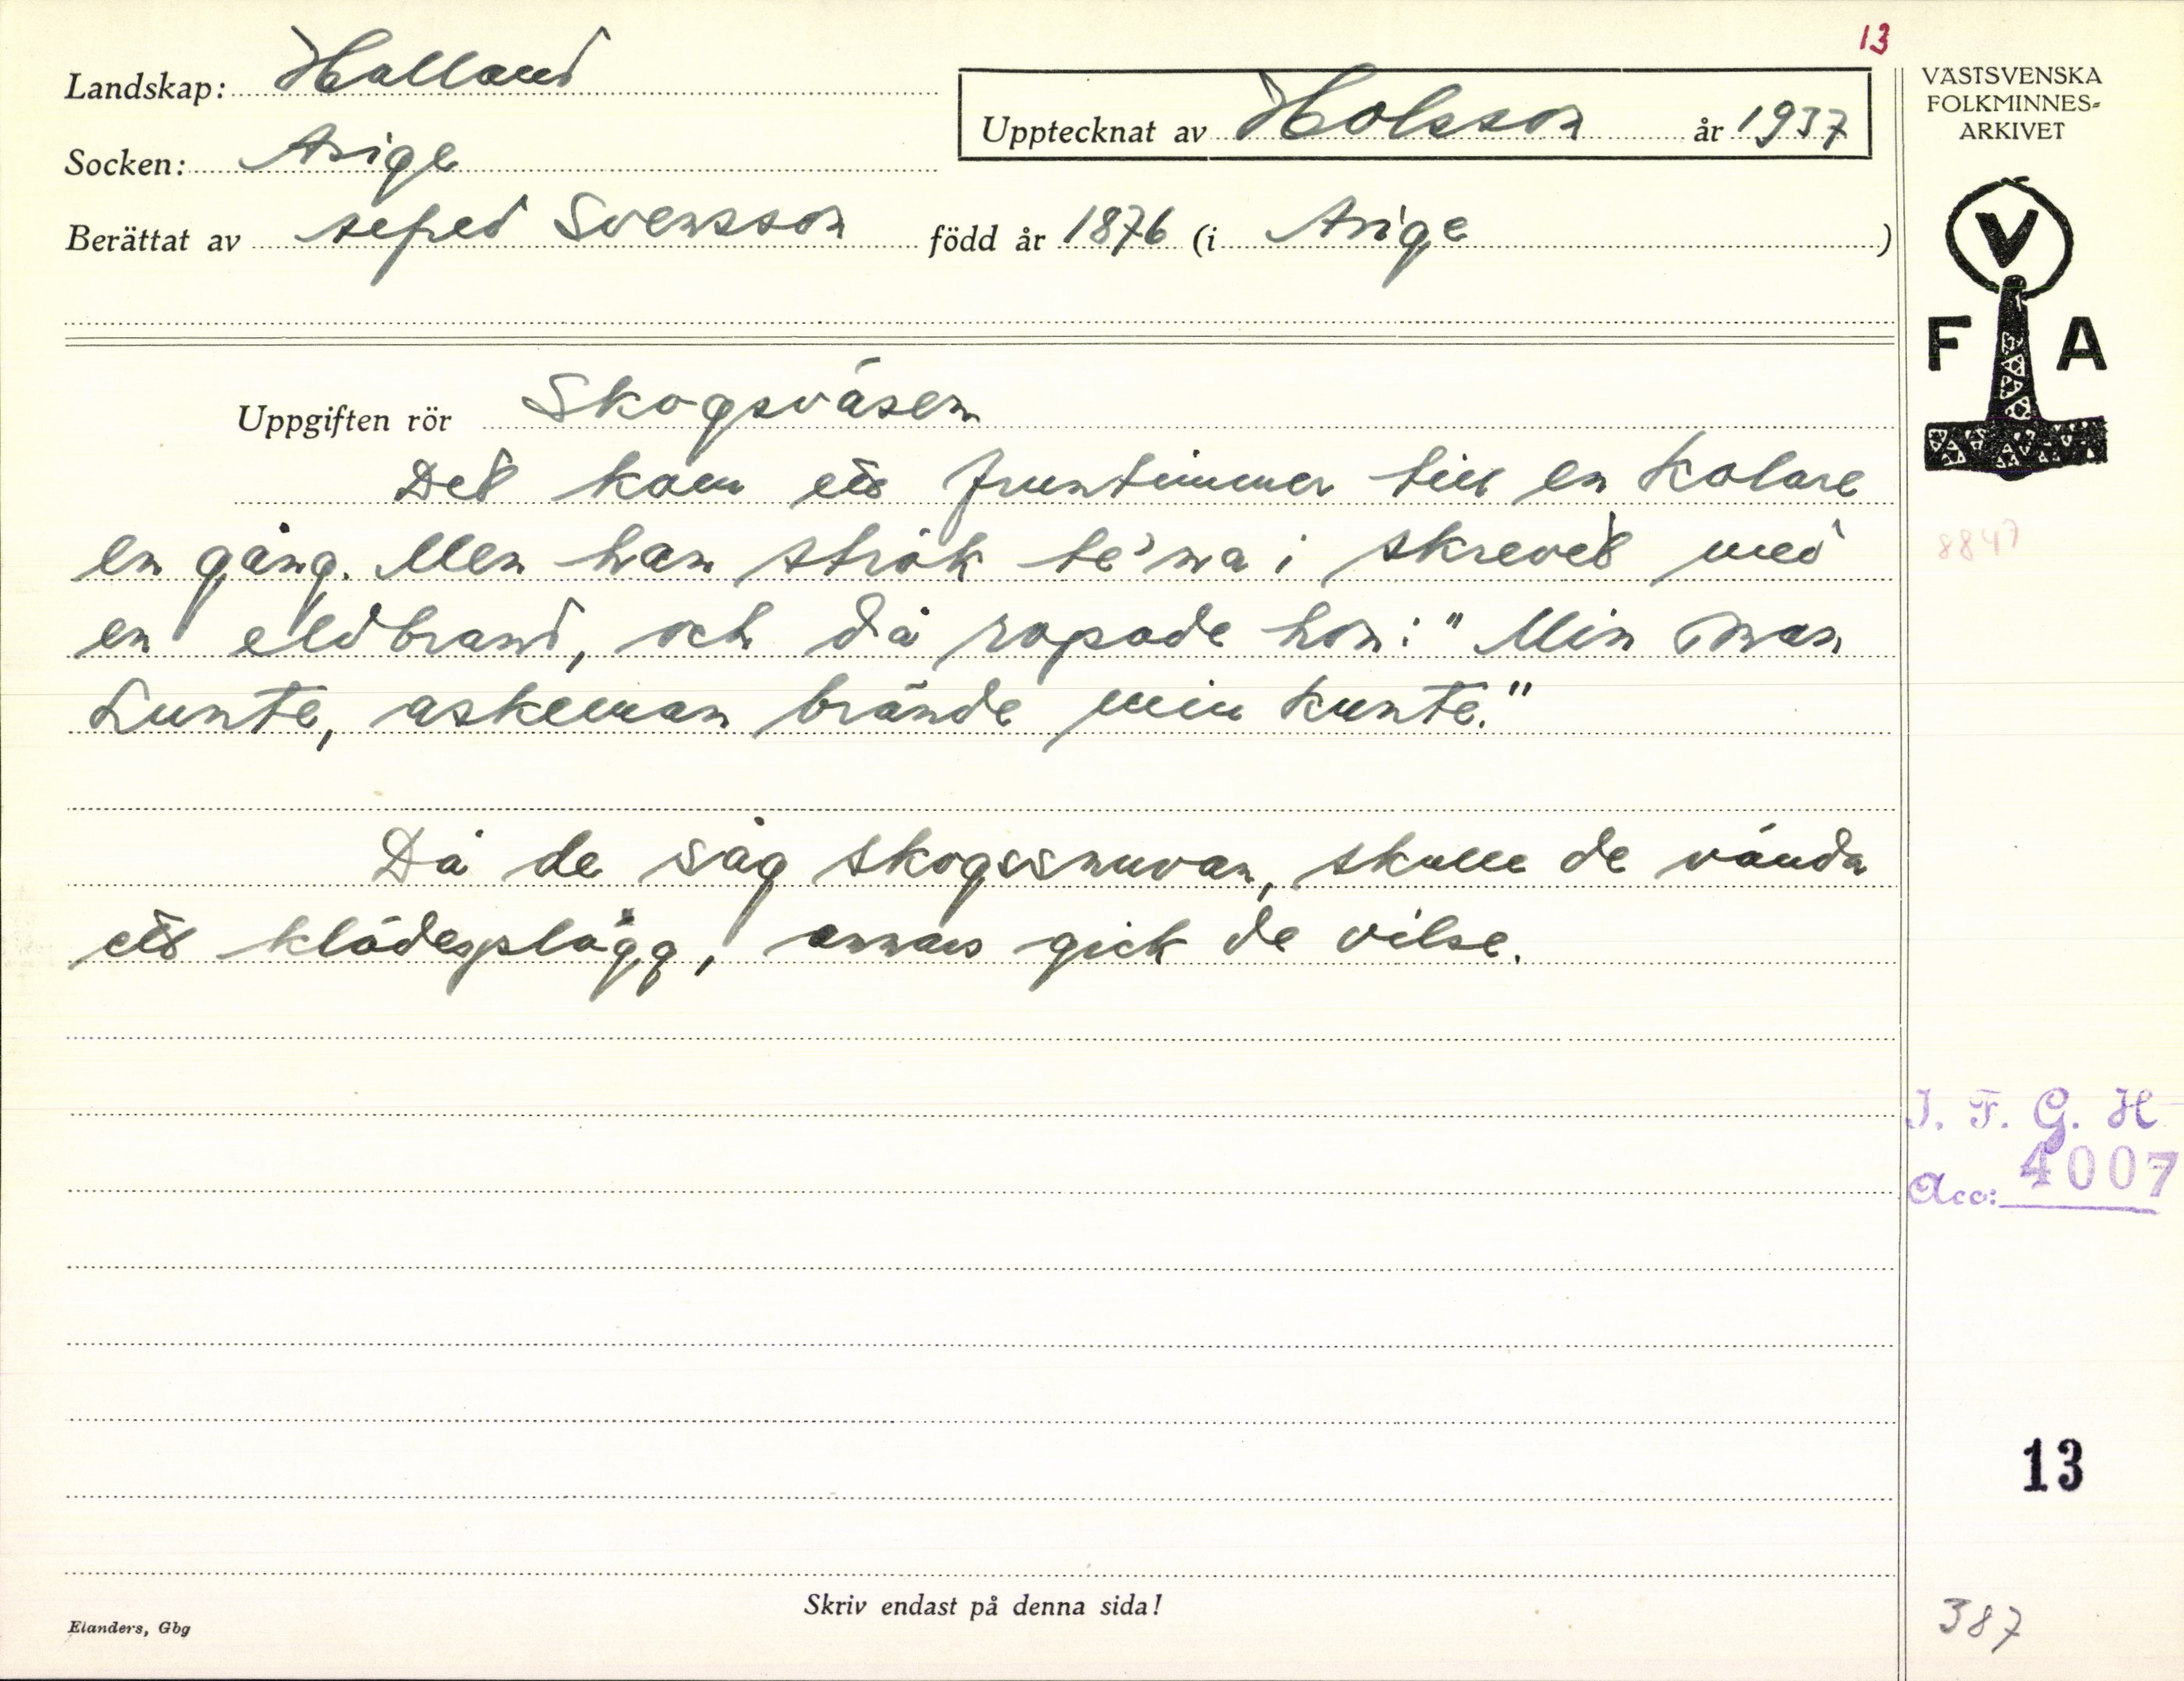 13
Landskap: Halland
Upptecknat av Holsson år 1937
Socken: Asige
Berättat av Alfred Svensson född år 1876 (i Asige)
VÄSTSVENSKA
FOLKMINNES-
ARKIVET
V
F A
Uppgiften rör Skogsväsen
Det kom ett fruntimmer till en kolare
en gång. Men han strök te'na i skrevet med
en eldbrand, och då ropade hon: "Min man
Lunte, askeman brände min kunte."
8847
Då de såg skogssnuvan, skulle de vända
ett klädesplagg, annars gick de vilse.
I. F. G. H
Acc: 4007
13
Skriv endast på denna sida!
Elanders, Gbg
387